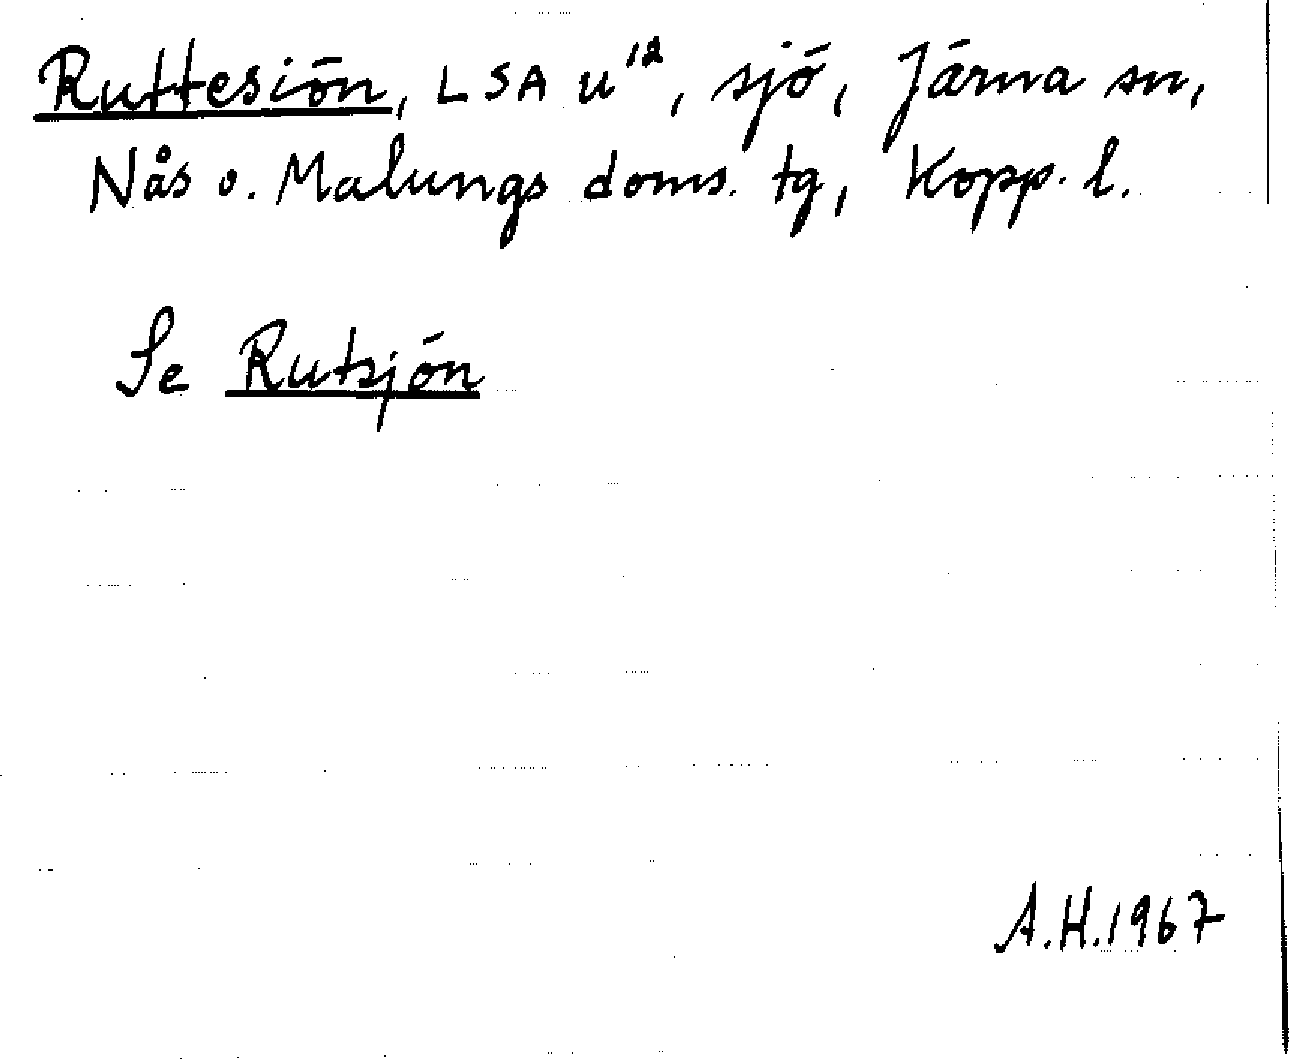 Ruttesiön, LSA u¹², sjö, Järna sn,
Nås o. Malungs doms. tg, Kopp. l.
Se Rutsjön
A.H.1967